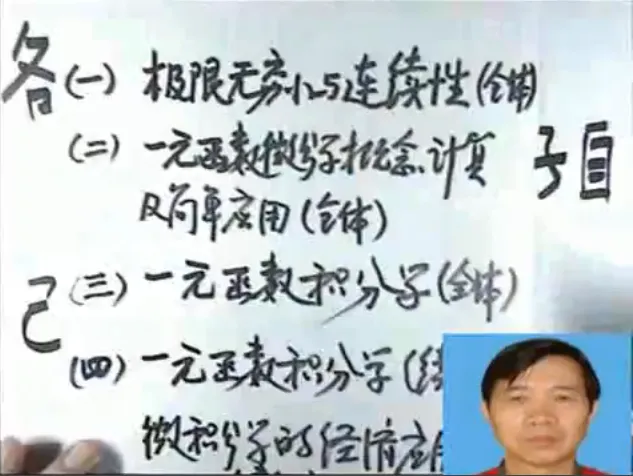 各
(一) 极限无穷小与连续性(全体)
(二) 一元函数微分学概念、计算
及简单应用(全体)
子目
己
(三) 一元函数积分学(全体)
(四) 一元函数积分学(续
微积分学的经济应用